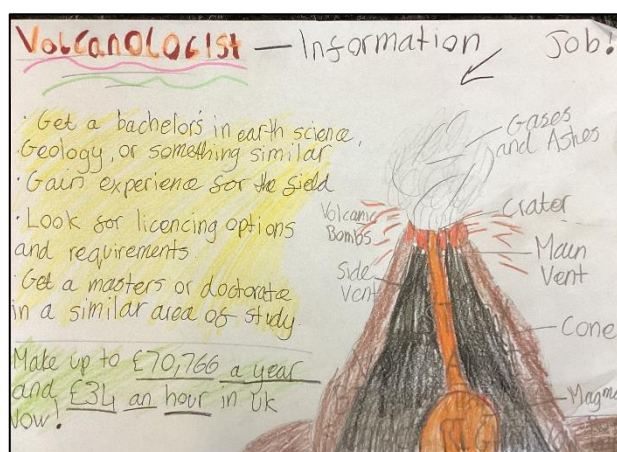 Volcanologist — Information Job!
· Get a bachelors in earth science,
Geology, or something similar
· Gain experience for the field
· Look for licencing options
and requirements
· Get a masters or doctorate
in a similar area of study
Make up to £70,766 a year
and £34 an hour in uk
Now!
Gases
and Ashes
Volcanic
Bombs
Crater
Main
Vent
Side
Vent
Cone
Magma